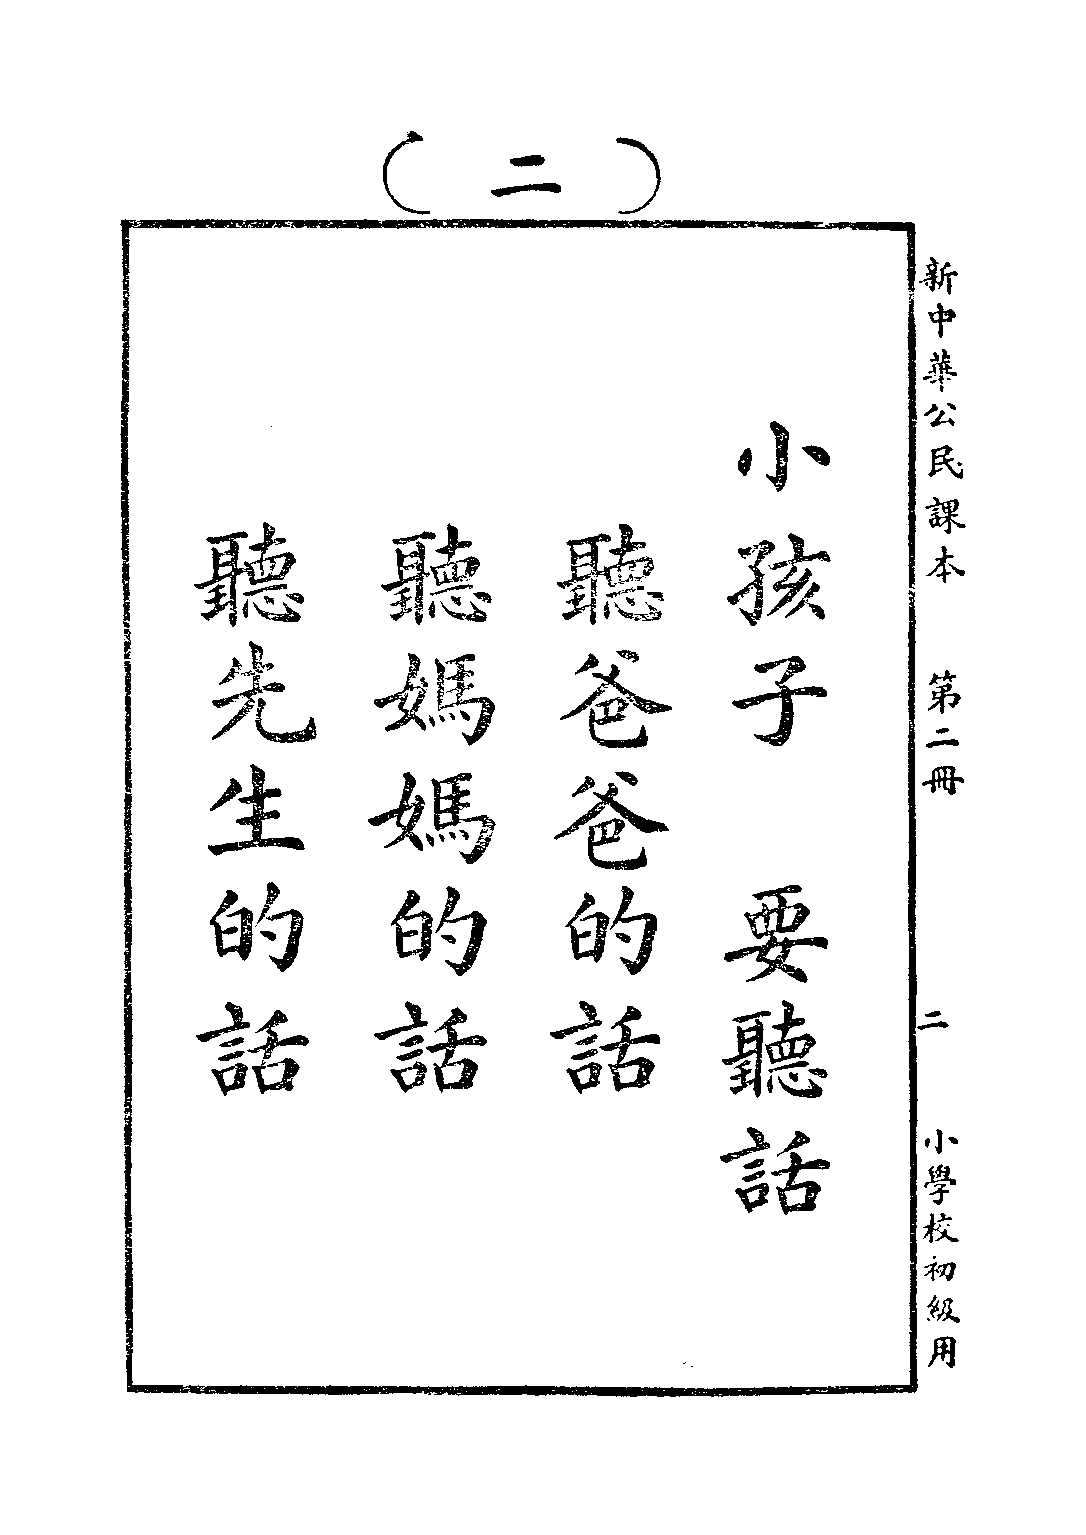 (二)
新中華公民課本 第二冊 二 小學校初級用
小孩子 要聽話
聽爸爸的話
聽媽媽的話
聽先生的話